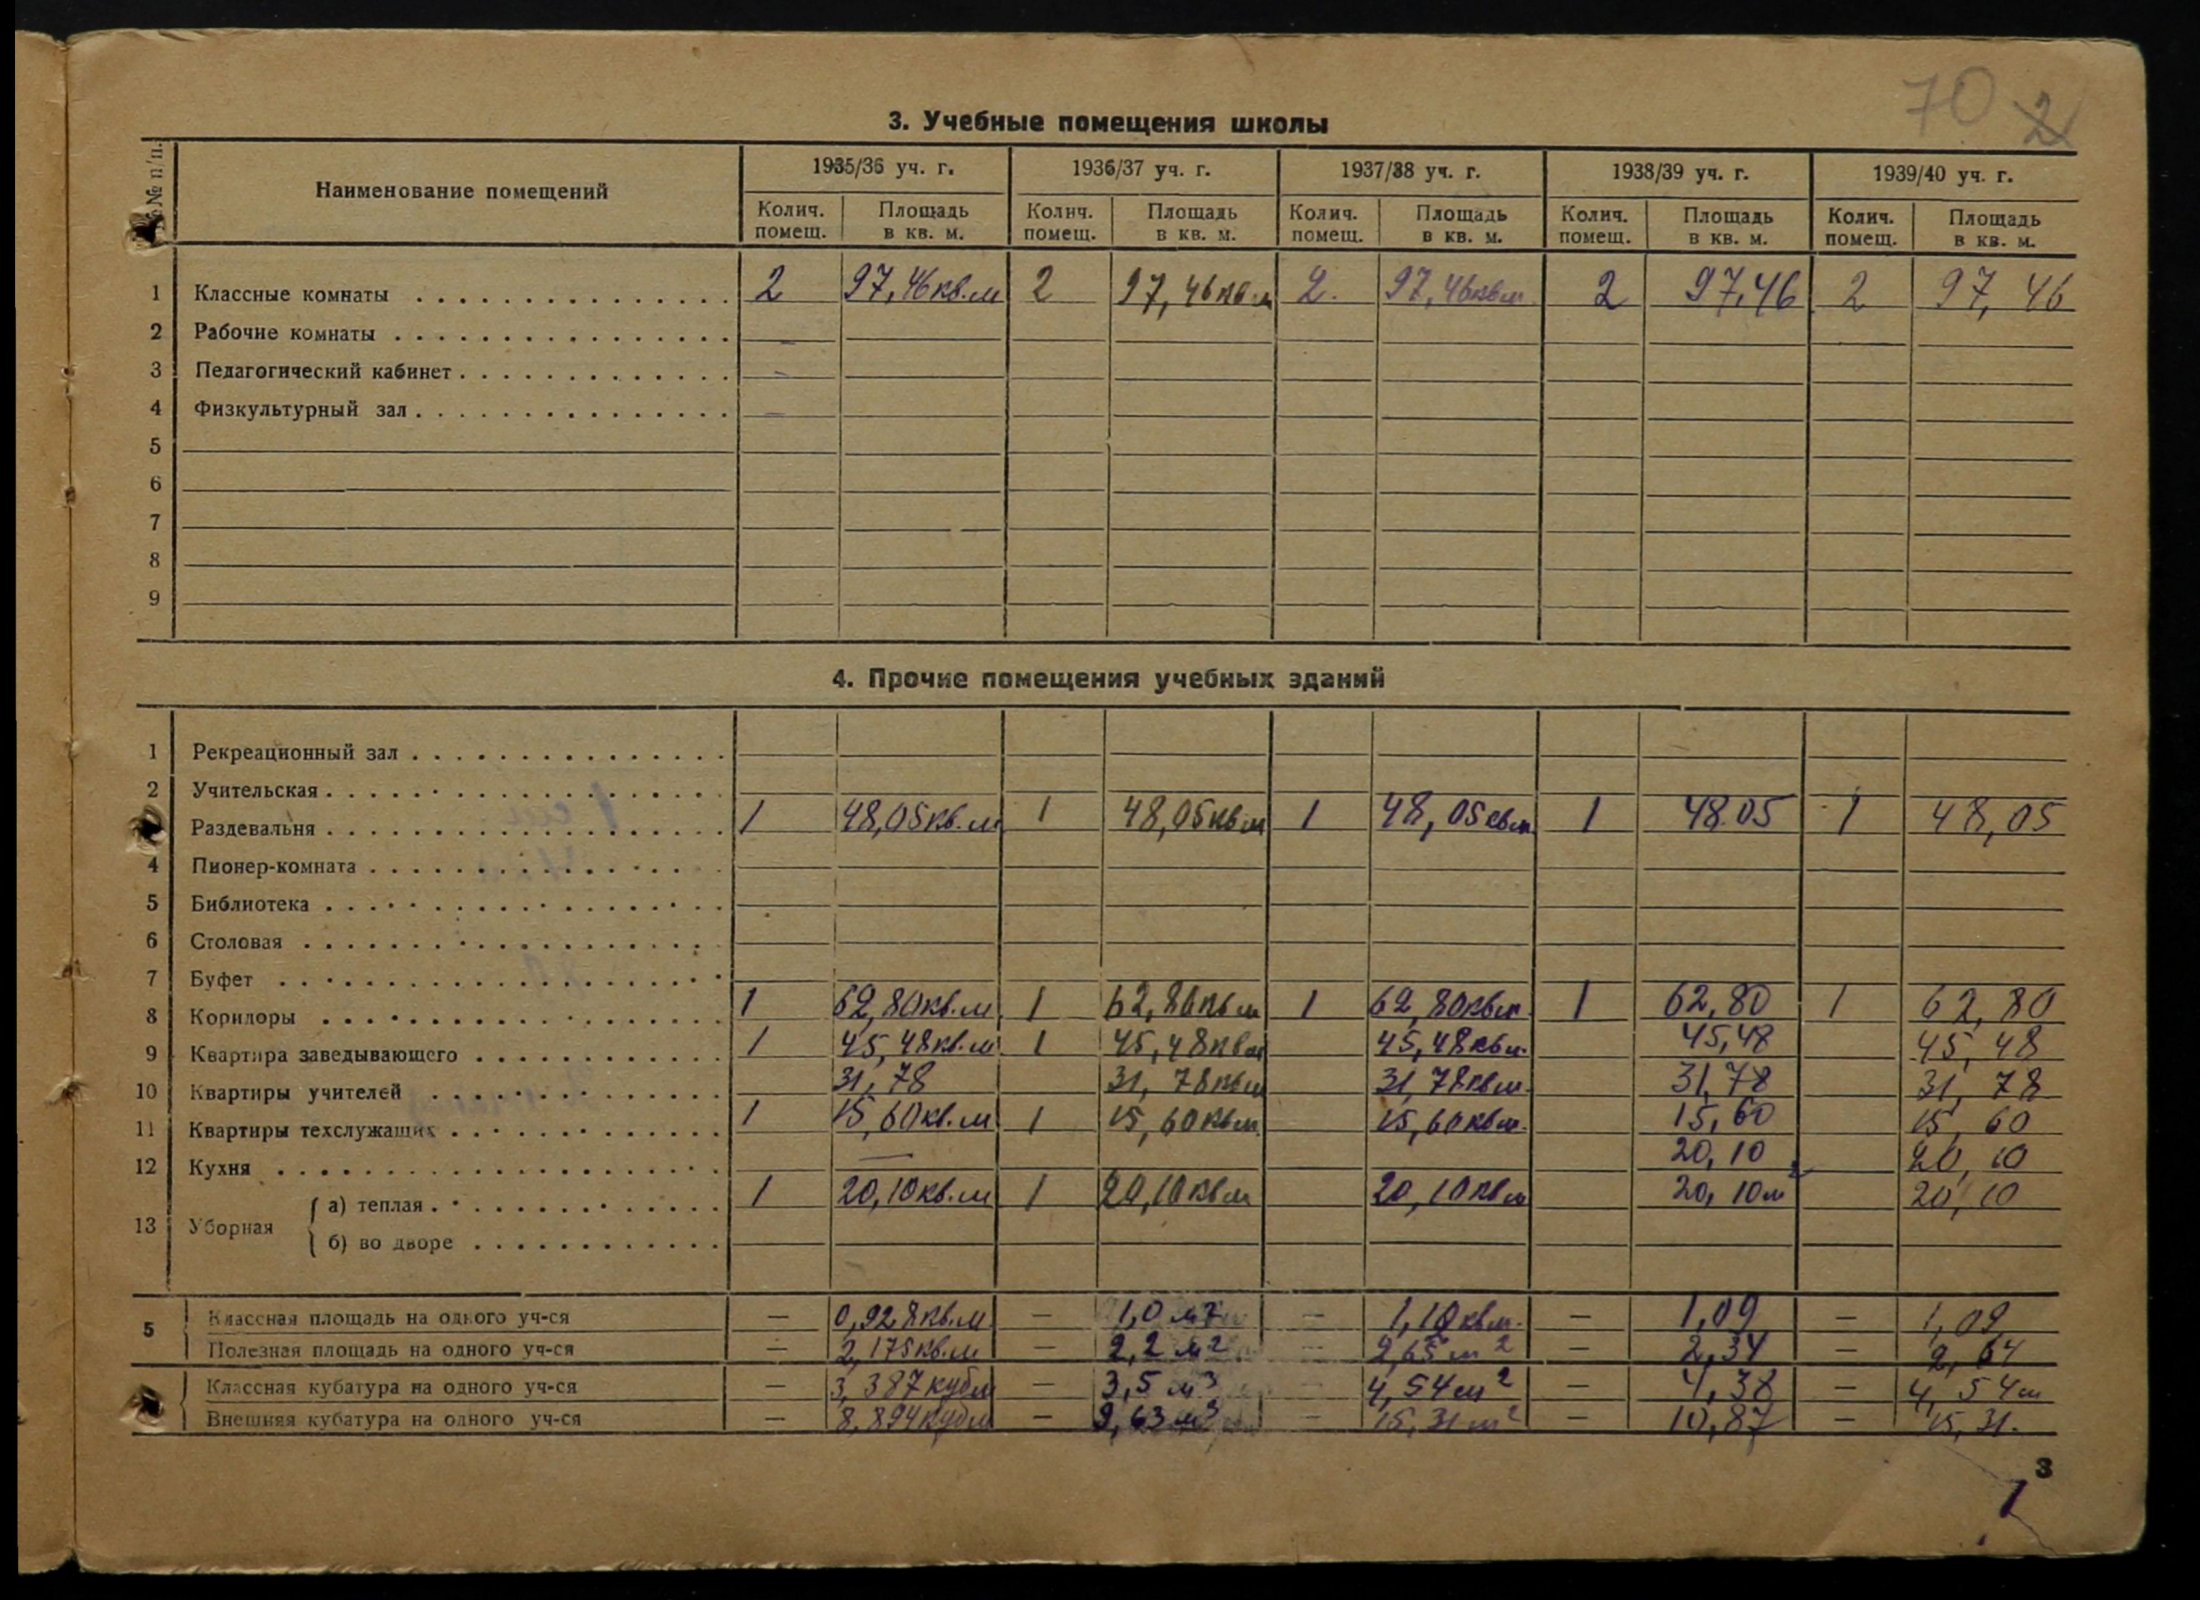 70 2
3. Учебные помещения школы
№№ п/п. Наименование помещений 1935/36 уч. г. 1936/37 уч. г. 1937/38 уч. г. 1938/39 уч. г. 1939/40 уч. г.
Колич. помещ. Площадь в кв. м. Колич. помещ. Площадь в кв. м. Колич. помещ. Площадь в кв. м. Колич. помещ. Площадь в кв. м. Колич. помещ. Площадь в кв. м.
1 Классные комнаты 2 97,46 кв.м 2 97,46 кв.м 2. 97,46 квм 2 97,46 2 97,46
2 Рабочие комнаты
3 Педагогический кабинет
4 Физкультурный зал
5
6
7
8
9
4. Прочие помещения учебных зданий
1 Рекреационный зал
2 Учительская
Раздевальня 1 48,05 кв.м 1 48,05 квм 1 48,05 квм 1 48.05 1 48,05
4 Пионер-комната
5 Библиотека
6 Столовая
7 Буфет
8 Коридоры 1 62,80 кв.м 1 62,80 квм 1 62,80 квм 1 62,80 1 62,80
9 Квартира заведывающего 1 45,48 кв.м 1 45,48 квм 45,48 квм. 45,48 45,48
10 Квартиры учителей 31,78 31,78 квм 31,78 квм. 31,78 31,78
11 Квартиры техслужащих 1 15,60 кв.м 1 15,60 квм. 15,60 квм. 15,60 15,60
12 Кухня — 20,10 20,10
13 Уборная а) теплая 1 20,10 кв.м 1 20,10 квм 20,10 квм 20,10 м² 20,10
б) во дворе
5 Классная площадь на одного уч-ся — 0,928 кв.м — 1,0 — 1,10 квм. — 1,09 — 1,09
Полезная площадь на одного уч-ся — 2,175 кв.м — 2,2 м² — 2,65 м² — 2,34 — 2,64
Классная кубатура на одного уч-ся — 3,387 кубм — 3,5 м³ — 4,54 м² — 4,38 — 4,54 м
Внешняя кубатура на одного уч-ся — 8,894 кубм — 9,63 м³ — 15,31 м² — 10,87 — 15,31.
3